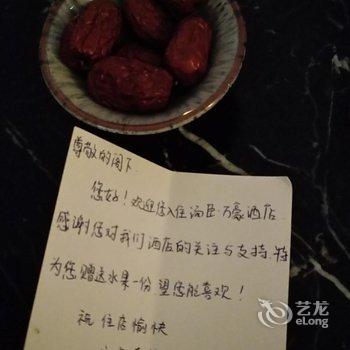 尊敬的阁下
您好！欢迎您入住汤臣万豪酒店
感谢您对我们酒店的关注与支持.特
为您赠送水果一份 望您能喜欢！
祝 住店愉快
艺龙
eLong